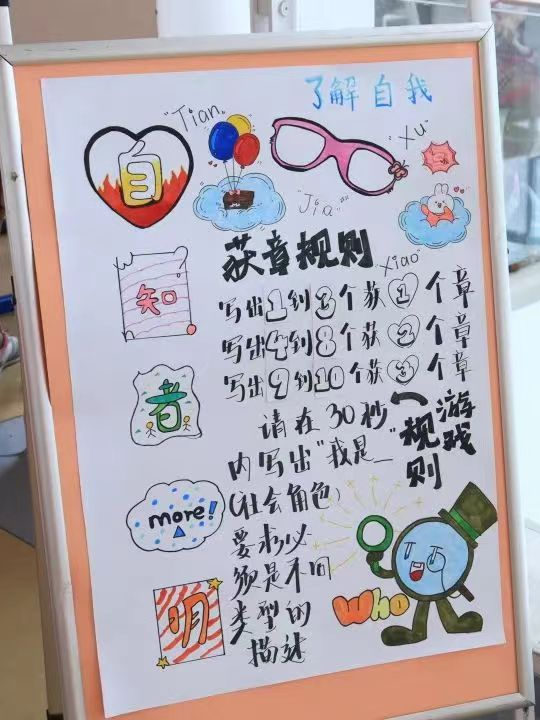 了解自我
"Tian"
自
"Xu"
"Jia"
"Xiao"
获章规则
知
写出1到3个获1个章
写出4到8个获2个章
写出9到10个获3个章
者
游戏规则
请在30秒
内写出"我是_"
(社会角色)
要求必
须是不同
类型的
描述
more!
明
Who